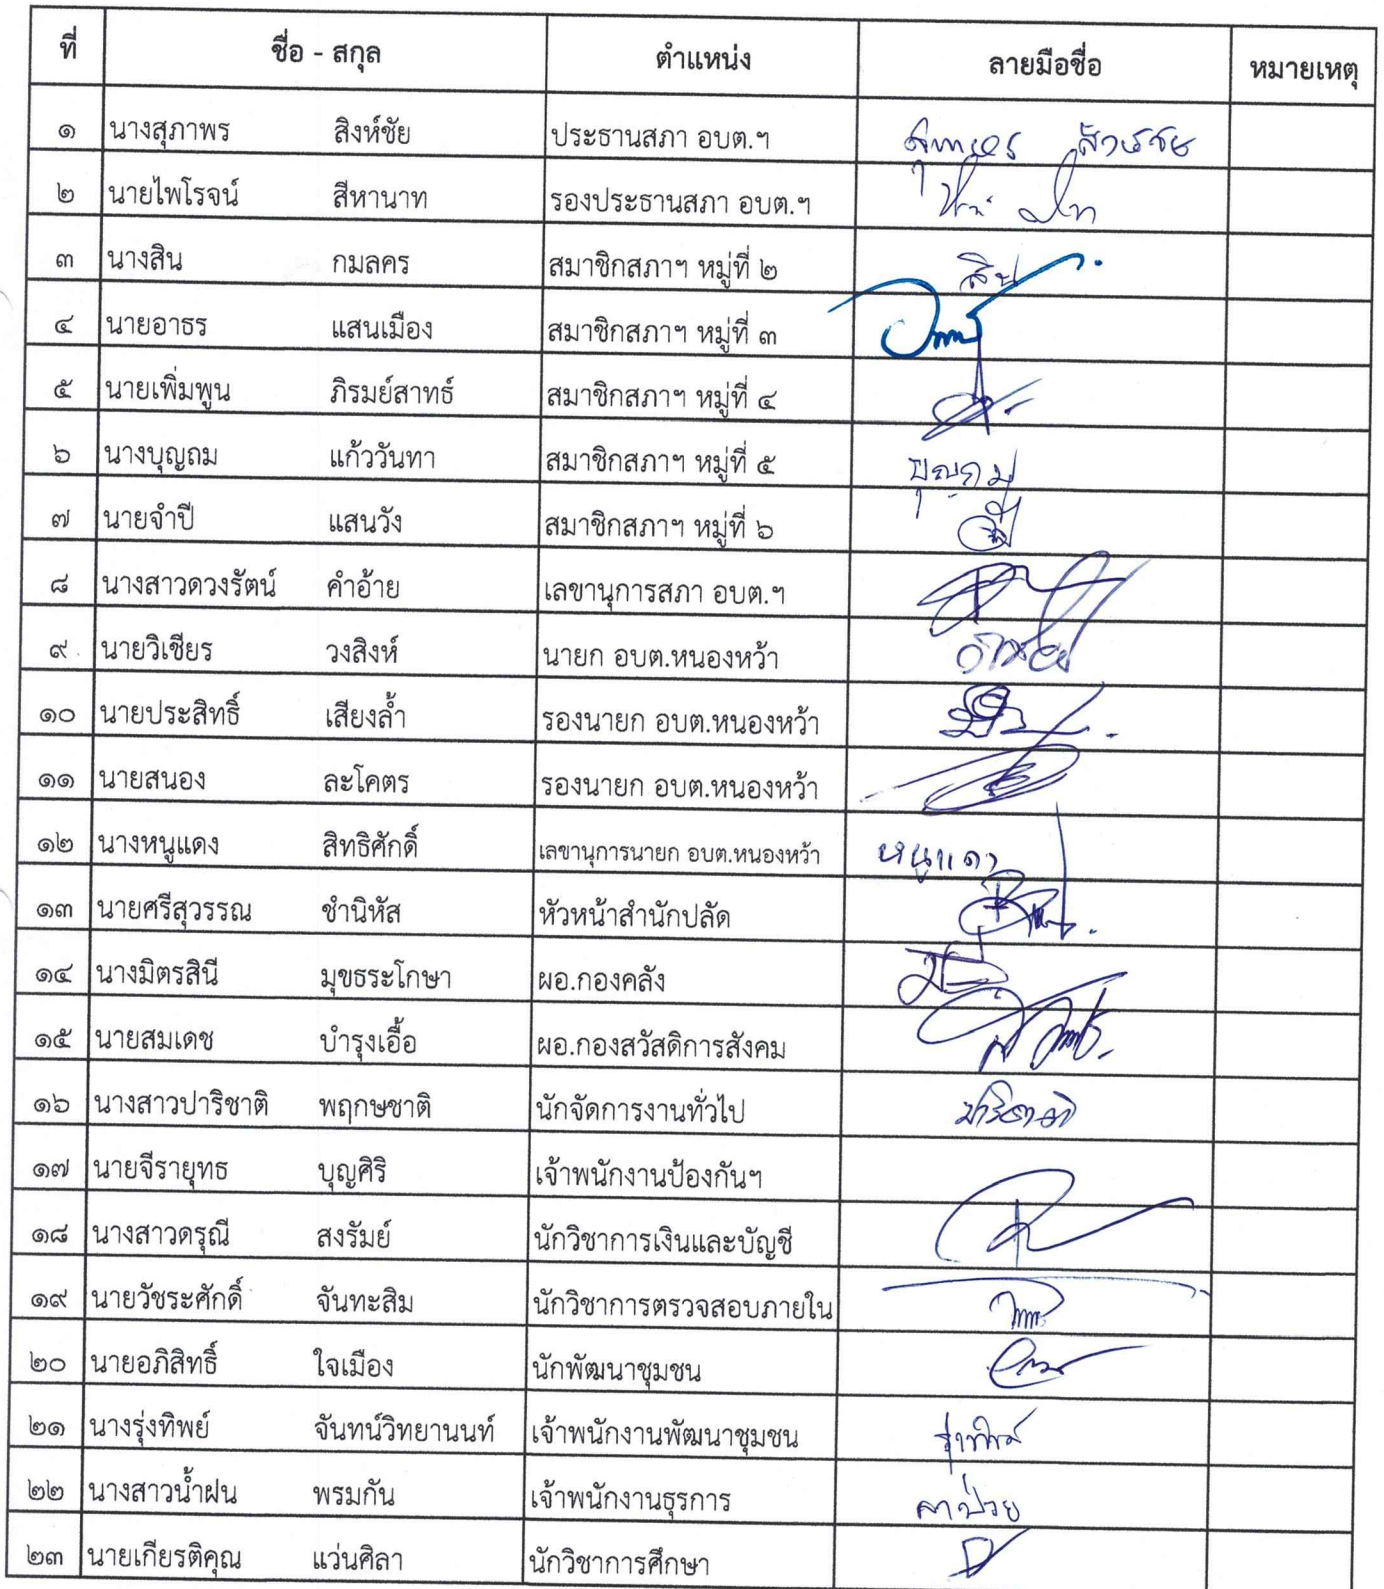 ที่ ชื่อ - สกุล ตำแหน่ง ลายมือชื่อ หมายเหตุ
๑ นางสุภาพร สิงห์ชัย ประธานสภา อบต.ฯ สุภาพร สิงห์ชัย
๒ นายไพโรจน์ สีหานาท รองประธานสภา อบต.ฯ
๓ นางสิน กมลคร สมาชิกสภาฯ หมู่ที่ ๒ สิน
๔ นายอาธร แสนเมือง สมาชิกสภาฯ หมู่ที่ ๓
๕ นายเพิ่มพูน ภิรมย์สาทธ์ สมาชิกสภาฯ หมู่ที่ ๔
๖ นางบุญถม แก้ววันทา สมาชิกสภาฯ หมู่ที่ ๕ บุญถม
๗ นายจำปี แสนวัง สมาชิกสภาฯ หมู่ที่ ๖
๘ นางสาวดวงรัตน์ คำอ้าย เลขานุการสภา อบต.ฯ
๙ นายวิเชียร วงสิงห์ นายก อบต.หนองหว้า
๑๐ นายประสิทธิ์ เสียงล้ำ รองนายก อบต.หนองหว้า
๑๑ นายสนอง ละโคตร รองนายก อบต.หนองหว้า
๑๒ นางหนูแดง สิทธิศักดิ์ เลขานุการนายก อบต.หนองหว้า หนูแดง
๑๓ นายศรีสุวรรณ ชำนิหัส หัวหน้าสำนักปลัด
๑๔ นางมิตรสินี มุขธระโกษา ผอ.กองคลัง
๑๕ นายสมเดช บำรุงเอื้อ ผอ.กองสวัสดิการสังคม
๑๖ นางสาวปาริชาติ พฤกษชาติ นักจัดการงานทั่วไป ปาริชาติ
๑๗ นายจีรายุทธ บุญศิริ เจ้าพนักงานป้องกันฯ
๑๘ นางสาวดรุณี สงรัมย์ นักวิชาการเงินและบัญชี
๑๙ นายวัชระศักดิ์ จันทะสิม นักวิชาการตรวจสอบภายใน
๒๐ นายอภิสิทธิ์ ใจเมือง นักพัฒนาชุมชน
๒๑ นางรุ่งทิพย์ จันทน์วิทยานนท์ เจ้าพนักงานพัฒนาชุมชน รุ่งทิพย์
๒๒ นางสาวน้ำฝน พรมกัน เจ้าพนักงานธุรการ ลาป่วย
๒๓ นายเกียรติคุณ แว่นศิลา นักวิชาการศึกษา